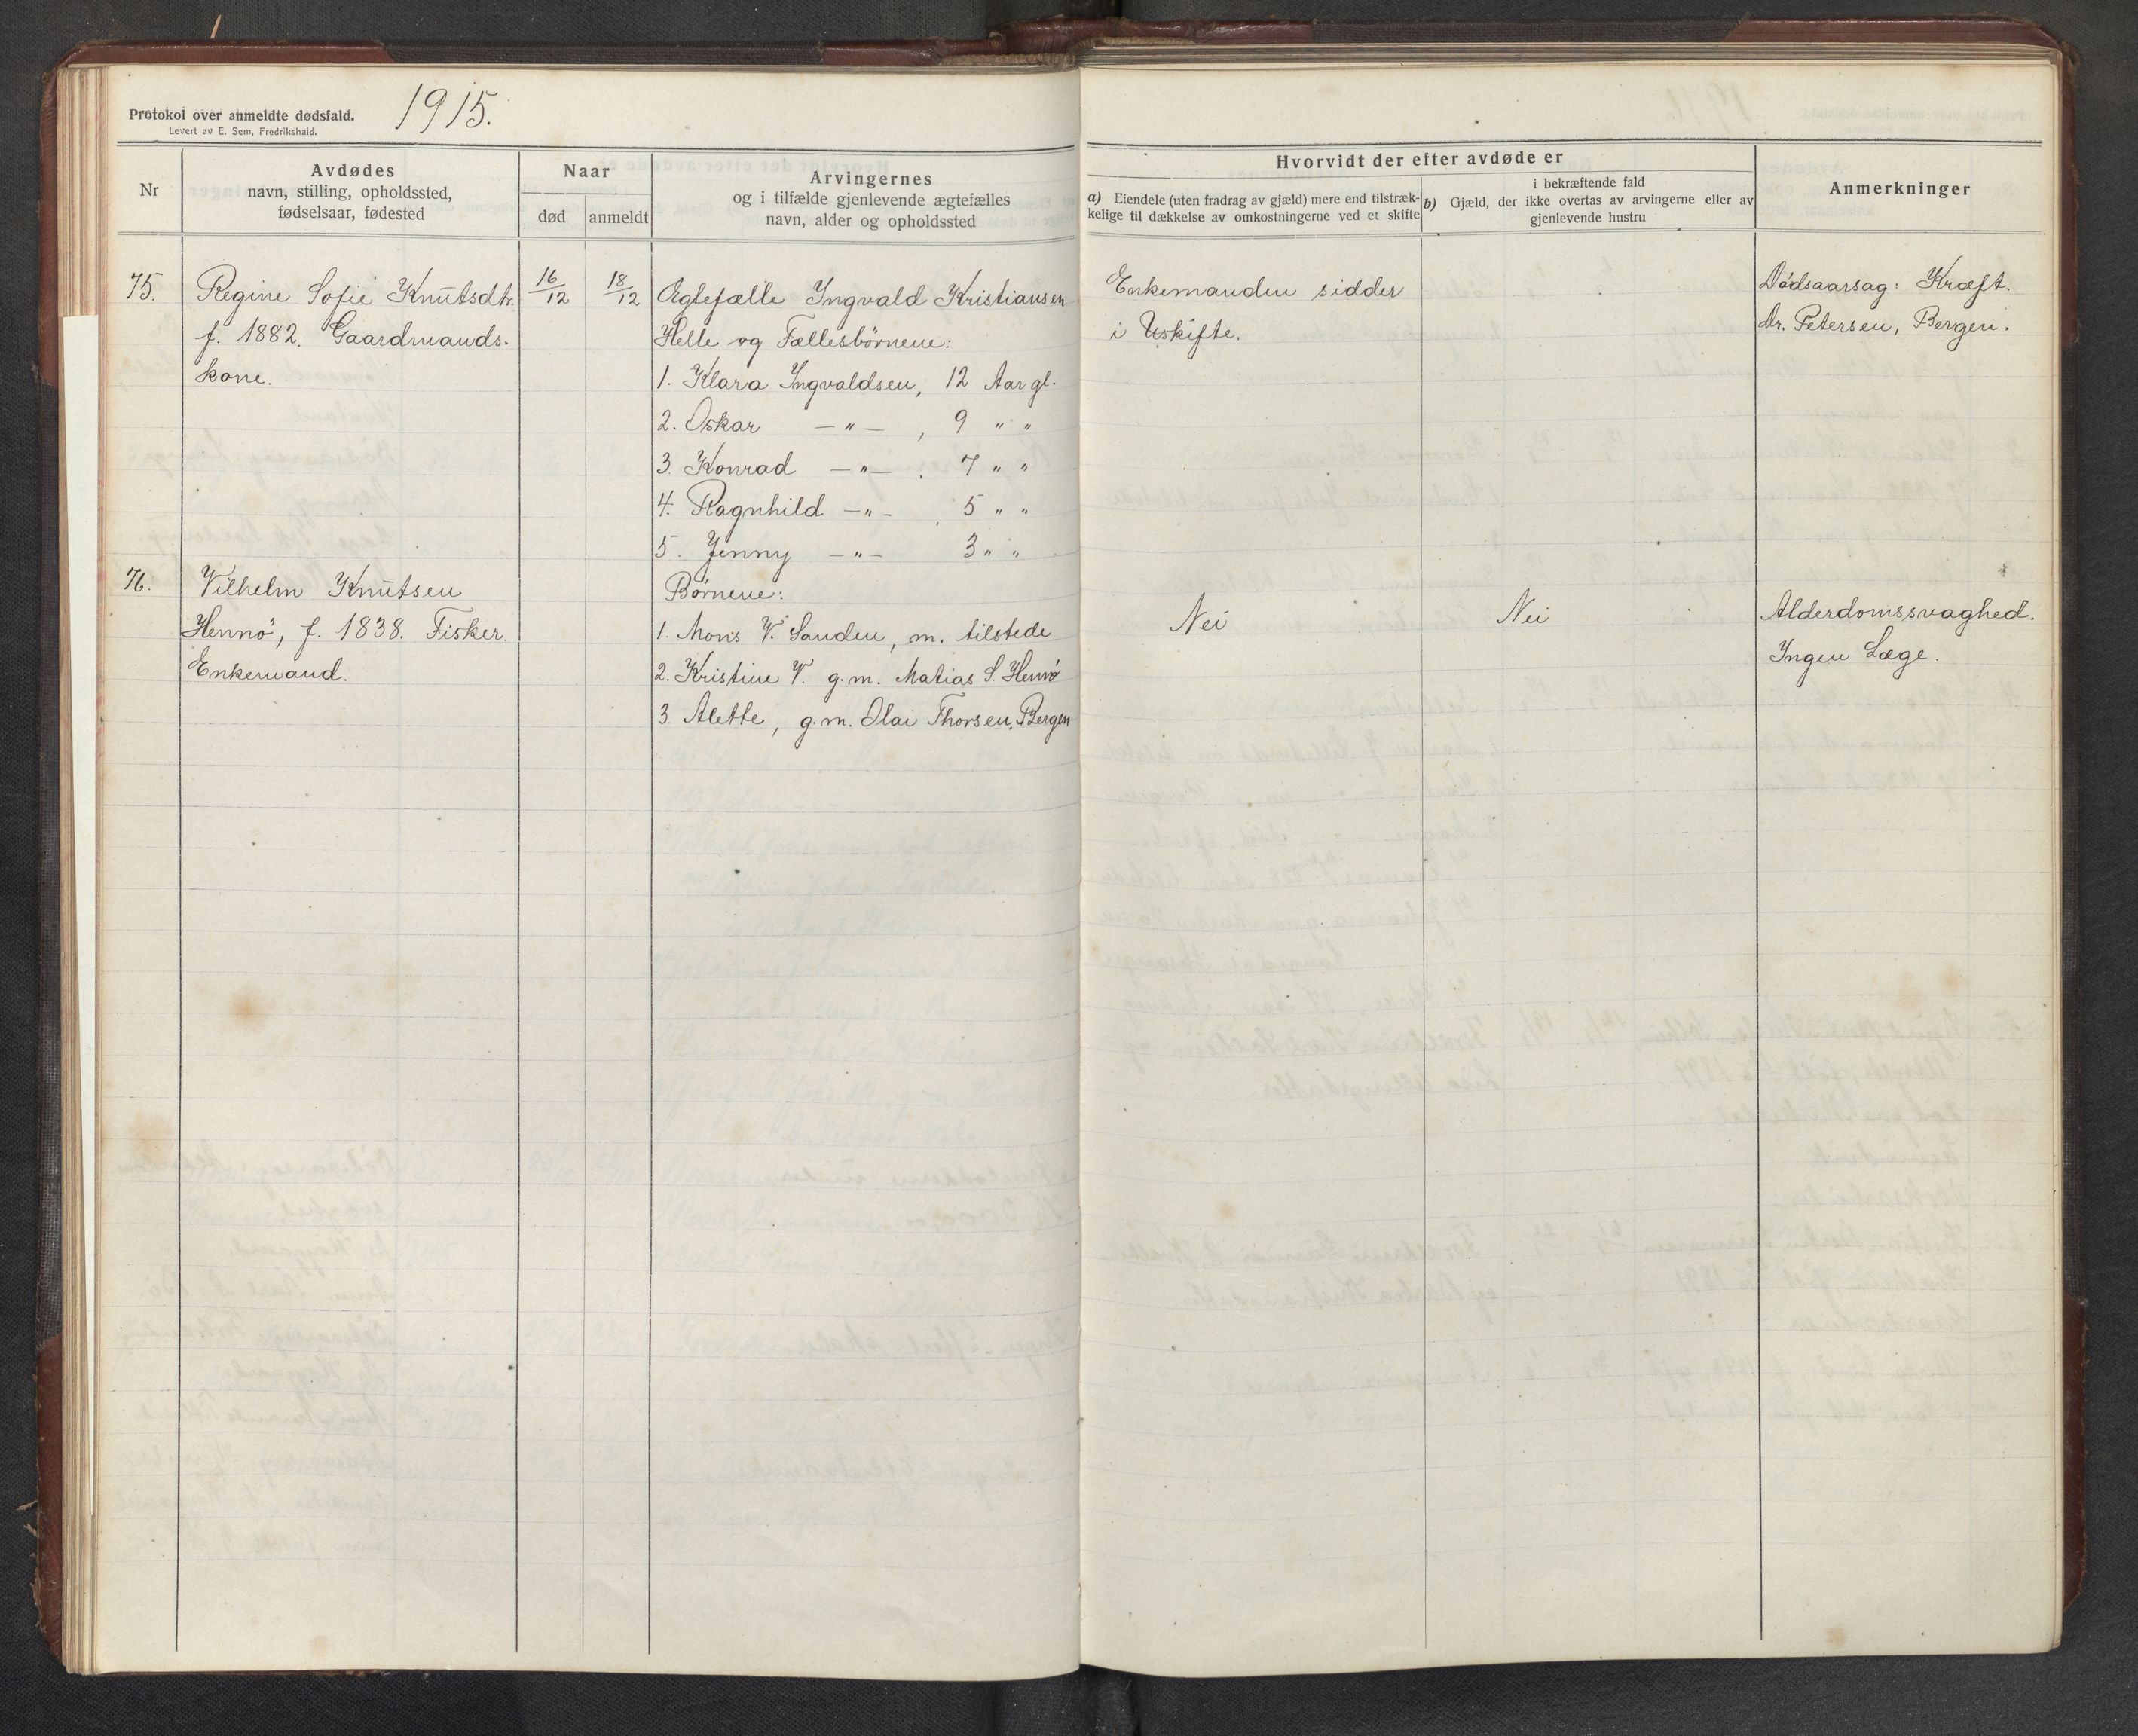 Protokol over anmeldte dødsfald. 1915.
Levert av E. Sem, Fredrikshald.
Nr
Avdødes
navn, stilling, opholdssted,
fødselsaar, fødested
Naar
død
anmeldt
Arvingernes
og i tilfælde gjenlevende ægtefælles
navn, alder og opholdssted
Hvorvidt der efter avdøde er
a) Eiendele (uten fradrag av gjæld) mere end tilstræk-
kelige til dækkelse av omkostningerne ved et skifte
i bekræftende fald
b) Gjæld, der ikke overtas av arvingerne eller av
gjenlevende hustru
Anmerkninger
75.
Regine Sofie Knutsdtr.
f. 1882. Gaardmands-
kone.
16/12
18/12
Ægtefælle Ingvald Kristiansen
Helle og Fællesbörnene:
1. Klara Ingvaldsen, 12 Aar gl.
2. Oskar —"— , 9 " "
3. Konrad —"— . 7 " "
4. Ragnhild —"— , 5 " "
5. Jenny —"— 3 " "
Enkemanden sidder
i Uskifte.
Dödsaarsag: Kræft.
Dr. Petersen, Bergen.
76.
Vilhelm Knutsen
Hennö, f. 1838. Fisker.
Enkemand.
Børnene:
1. Mons V. Sanden, m. tilstede
2. Kristine V. g.m. Matias S. Hennö
3. Alette, g.m. Olai Thorsen, Bergen
Nei
Nei
Alderdomssvaghed.
Ingen Læge.